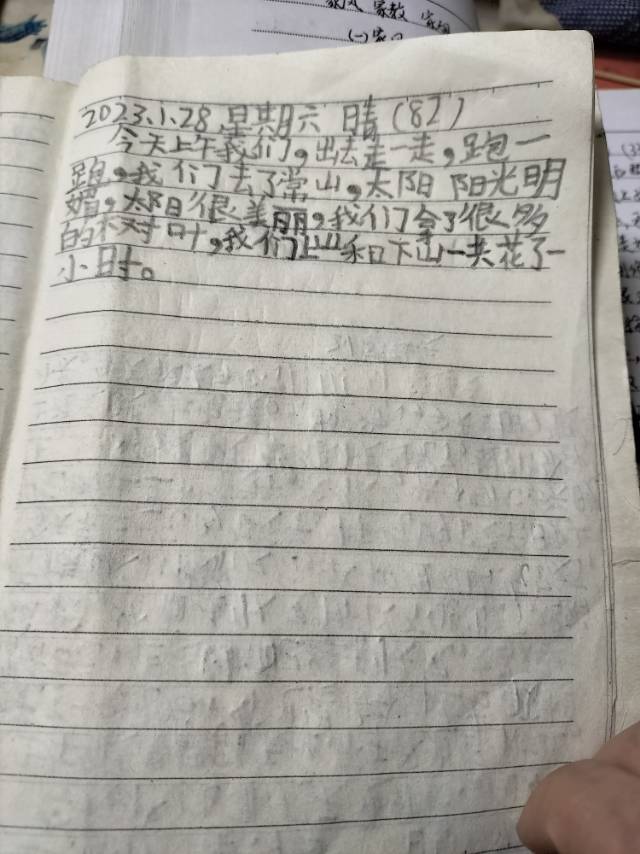 家风 家教
(一)家
2023.1.28 星期六 晴(82)
今天上午我们,出去走一走,跑一
跑,我们去了常山,太阳 阳光明
媚,太阳很美丽,我们拿了很多
的树叶,我们上山和下山一共花了一
小时。